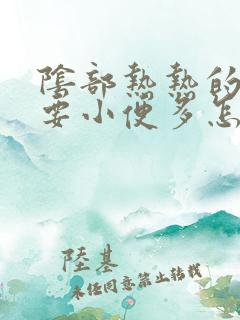 陰部熱熱的
要小便多怎
陸基
未經同意禁止转载